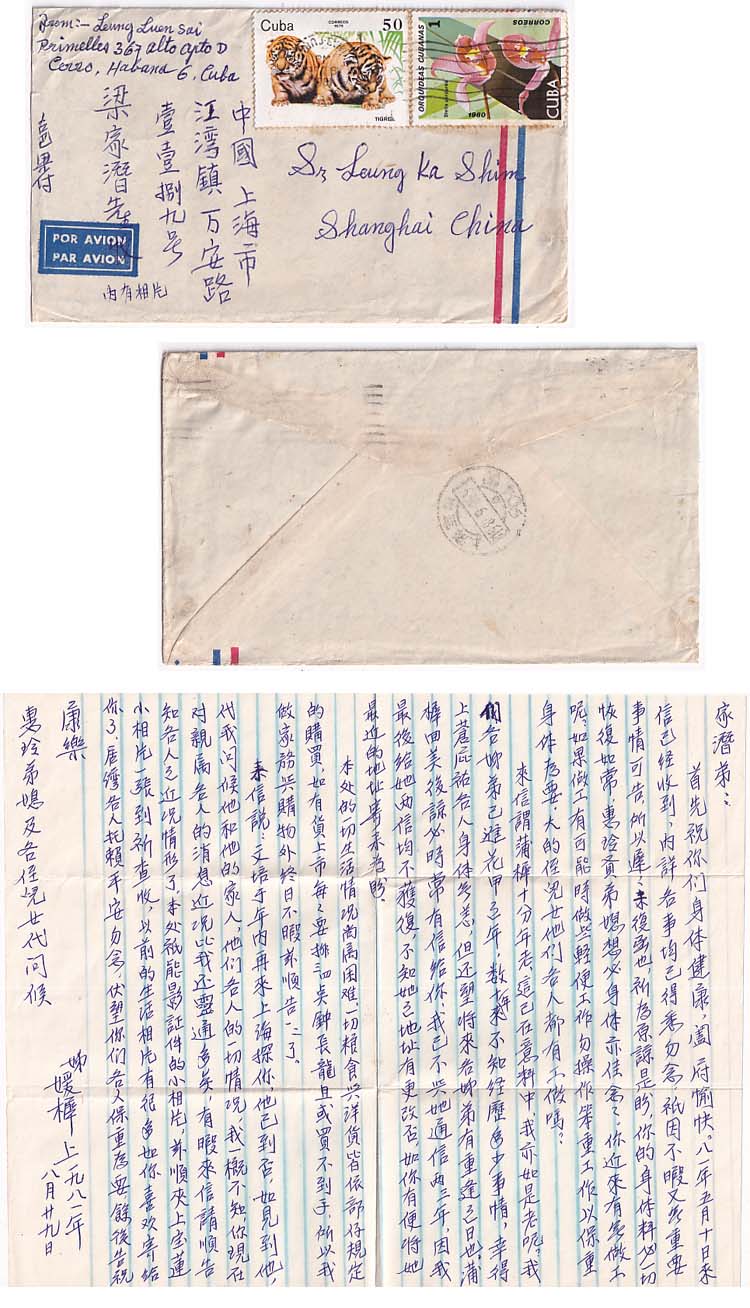 From:- Leung Luen Sai
Primelles 367 alto apto D
Cerro, Habana 6, Cuba
Cuba
CORREOS
50
TIGRES.
1
CORREOS
ORQUIDEAS CUBANAS
1980
CUBA
Sr Leung Ka Shim
Shanghai China
中國 上海市
江湾鎮万安路
壹壹捌九号
梁家潛先
POR AVION
PAR AVION
內有相片
家潛弟：
首先祝你们身体健康，阖府愉快。八一年五月十日來
信已經收到，內詳各事均已得悉勿念，祇因不暇又無重要
事情可告，所以遲遲未復函也，祈為原諒是盼，你的身体料必一切
恢復如常，惠玲賢弟媳想必身体亦佳念念，你近來有無做工
呢，如果做工有可能時做些輕便工作勿操作笨重工作以保重
身体為要，大的侄兒女他们各人都有工做嗎？
來信謂蒲樺十分年老，這已在意料中，我亦如是老呢，我
們各姊弟已進花甲之年，数十年來不知經歷多少事情，幸得
上蒼庇祐各人身体無恙，但还望將來各姊弟有重逢之日也，蒲
樺回美後諒必時常有信給你，我已不與她通信两三年，因我
最後給她两信均不獲復，不知她之地址有更改否，如你有便將她
最近的地址寄來為盼。
本处的一切生活情况尚属困难一切粮食與洋貨皆依部仔規定
的購買，如有貨上市每每要排三四点鐘長龍且或買不到手，所以我
做家務與購物外終日不暇並順告一二了。
來信說，文培于年內再來上海探你，他已到否，如見到他，
代我问候他和他的家人，他们各人的一切情况，我一概不知，你現在
对親属各人的消息近况比我还靈通多矣，有暇來信請順告
知各人之近况情形了，本处祇能影証件的小相片，並順夾上宝蓮
小相片一張到祈查收，以前的生活相片有很多也，你喜欢寄給
你了，居灣各人托賴平安勿念，伏望你们各人保重為要，餘後告祝
康樂
惠玲弟媳及各侄兒女代问候
姊
媛樺 上一九八一年
八月廿九日